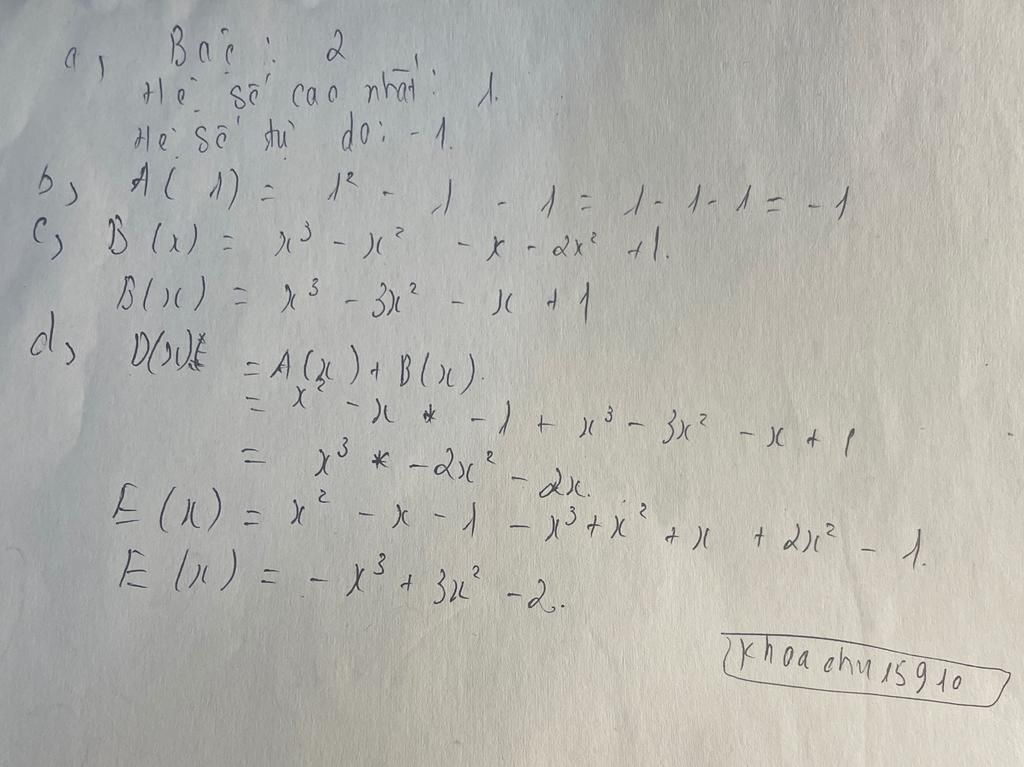 a, Bậc : 2
Hệ số cao nhất : 1.
Hệ số tự do: -1.
b, A( 1) = 1² - 1 - 1 = 1 - 1 - 1 = -1
c, B(x) = x³ - x² - x - 2x² + 1.
B(x) = x³ - 3x² - x + 1
d, D(x) = A(x) + B(x).
= x² - x - 1 + x³ - 3x² - x + 1
= x³ - 2x² - 2x.
E(x) = x² - x - 1 - x³ + x² + x + 2x² - 1.
E(x) = - x³ + 3x² - 2.
khoachu15910